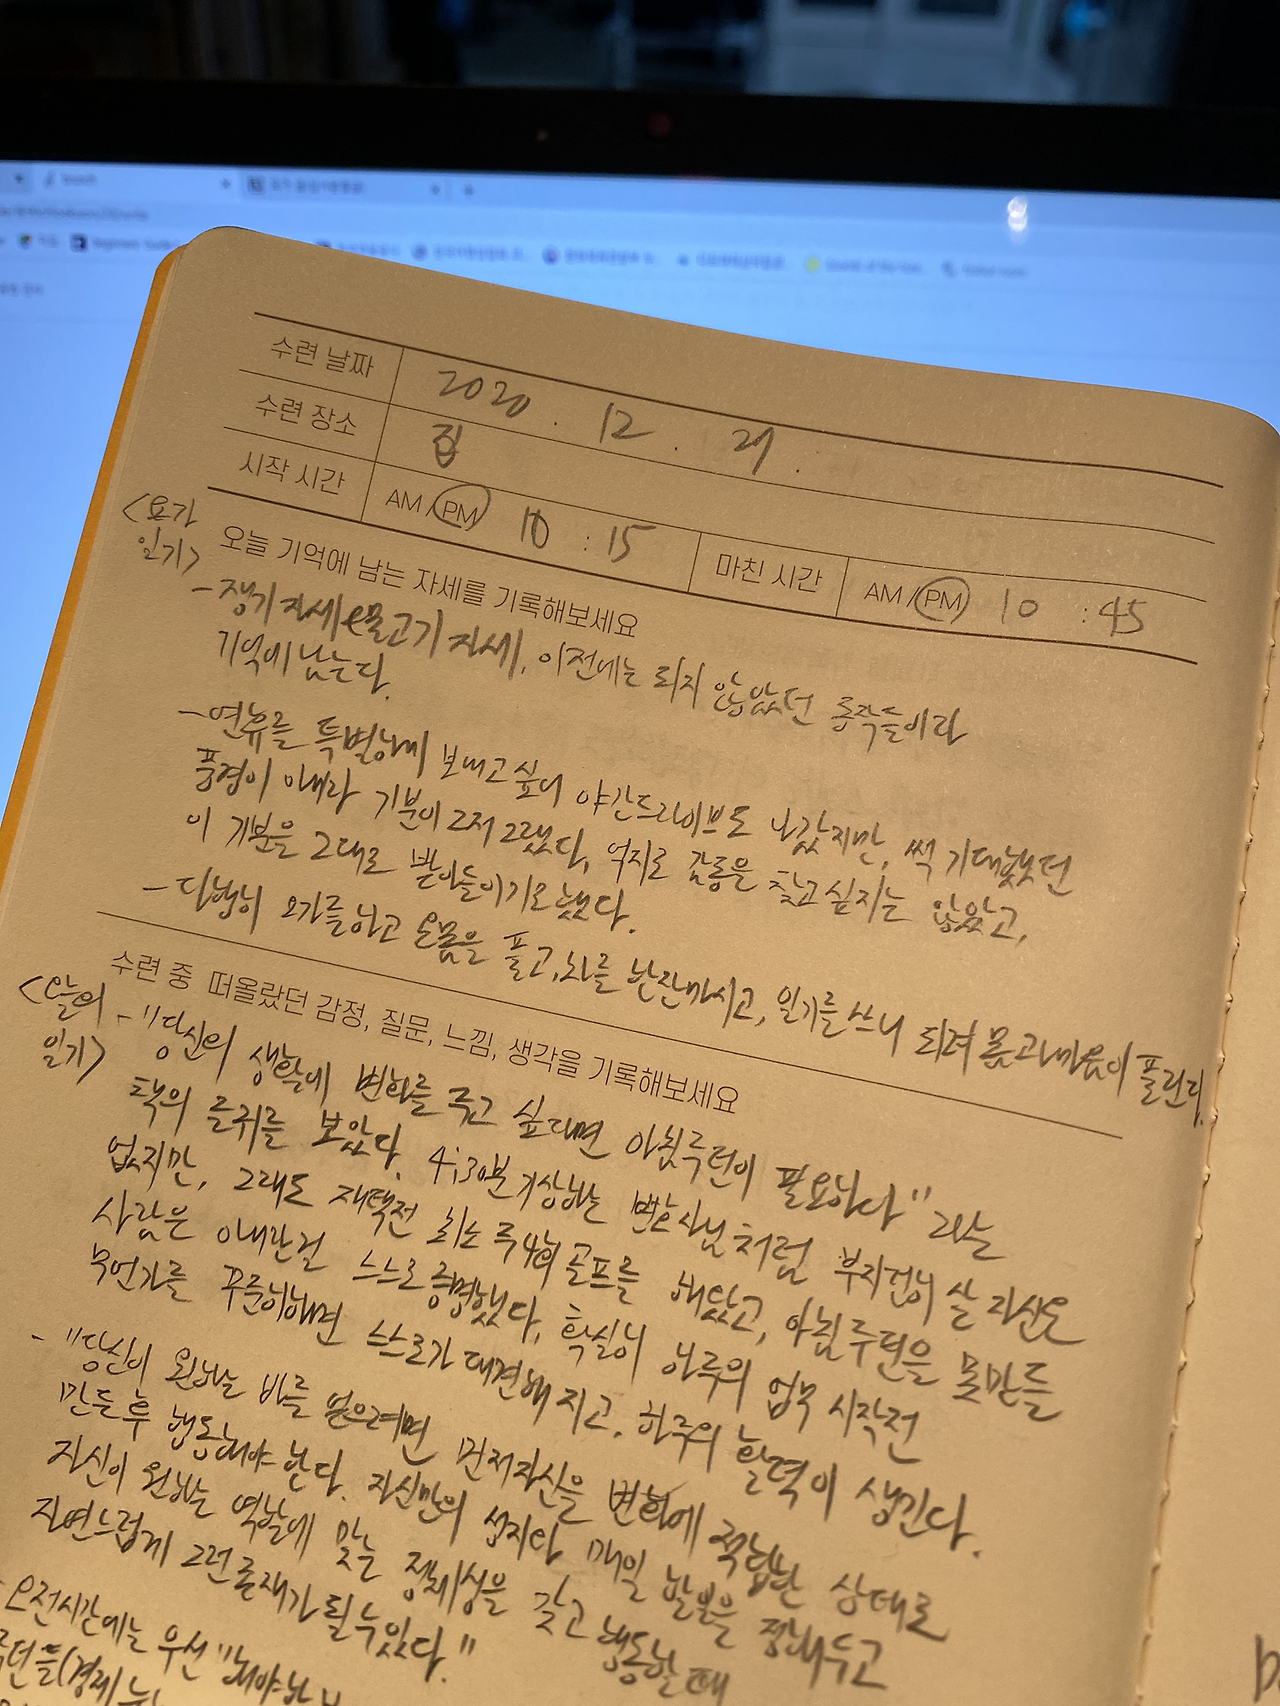 수련 날짜 2020 . 12 . 27 .
수련 장소 집
시작 시간 AM / PM 10 : 15 마친 시간 AM / PM 10 : 45
<요가
일기>
오늘 기억에 남는 자세를 기록해보세요
- 쟁기 자세 물고기 자세, 이전에는 되지 않았던 동작들이라
기억에 남는다.
- 연휴를 특별하게 보내고 싶어 야간드라이브도 나갔지만, 썩 기대했던
풍경이 아니라 기분이 그저 그랬다, 억지로 감동을 찾고 싶지는 않았고,
이 기분을 그대로 받아들이기로 했다.
- 하고 온몸을 풀고, 차를 한잔마시고, 일기를 쓰니 되려 몸과마음이 풀린다.
수련 중 떠올랐던 감정, 질문, 느낌, 생각을 기록해보세요
<오늘의
일기>
- "당신의 생활에 변화를 주고 싶다면 아침루틴이 필요하다" 라는
책의 글귀를 보았다. 4:30분 기상하는 변호사님처럼 부지런히 살 자신은
없지만, 그래도 재택전 최소 주4회 골프를 해왔고, 아침루틴을 못만들
사람은 아니란걸 스스로 증명했다, 확실히 하루의 업무 시작전
무언가를 꾸준히하면 스스로가 대견해 지고, 하루의 활력이 생긴다.
- "당신이 원하는 바를 얻으려면 먼저자신을 변화에 적합한 상태로
만든 후 행동해야 한다. 자신만의 매일 정해두고
자신이 원하는 역할에 맞는 정체성을 갖고 행동할 때
자연스럽게 그런 존재가 될 수 있다."
오전시간에는 우선 "해야하